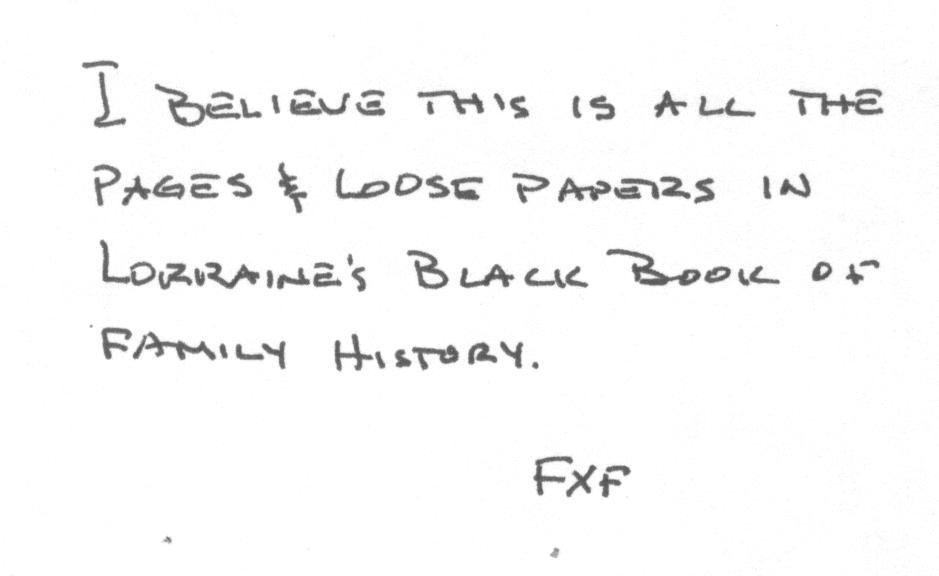 I BELIEVE THIS IS ALL THE
PAGES & LOOSE PAPERS IN
LORRAINE'S BLACK BOOK OF
FAMILY HISTORY.
FXF